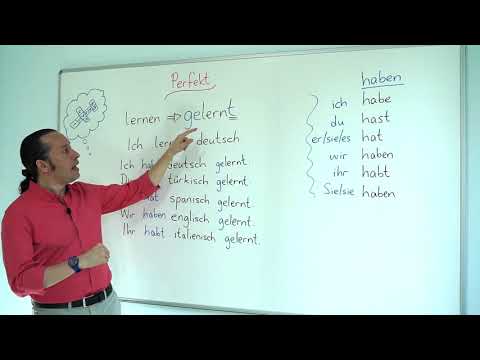 Perfekt
lernen ⇒ gelernt
Ich deutsch
Ich deutsch gelernt.
türkisch gelernt.
hat spanisch gelernt.
Wir haben englisch gelernt.
Ihr habt italienisch gelernt.
haben
ich habe
du hast
er/sie/es hat
wir haben
ihr habt
Sie/sie haben